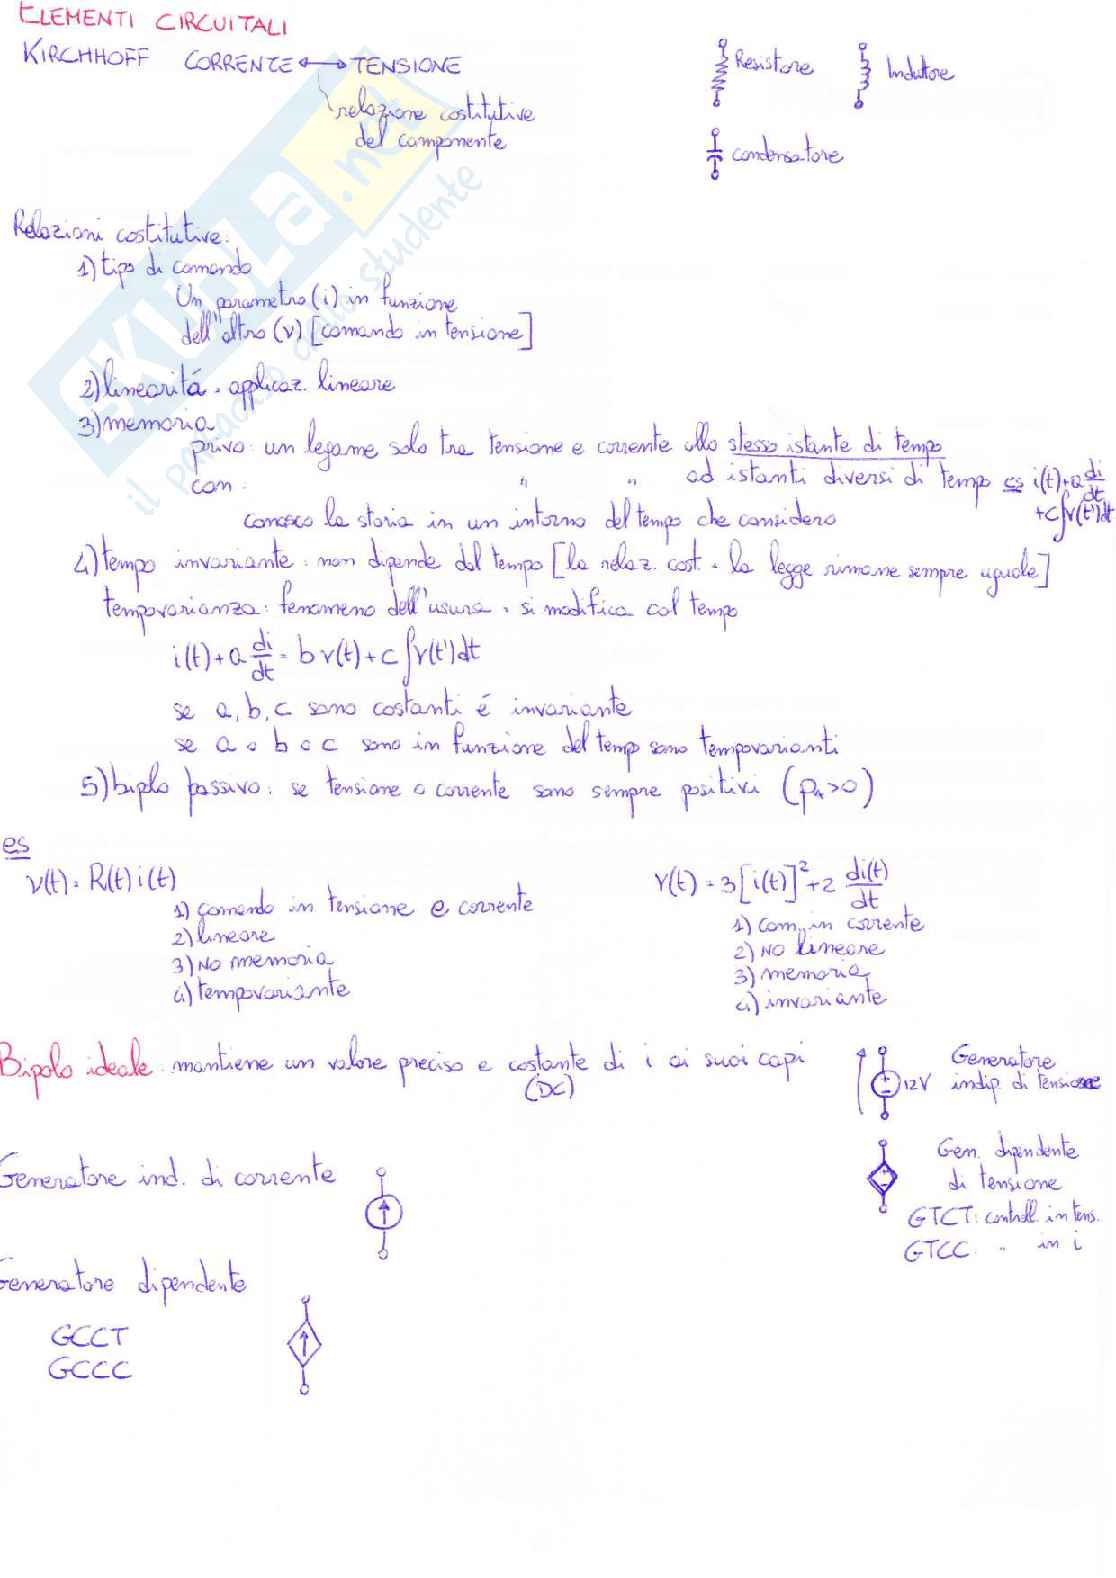 ELEMENTI CIRCUITALI
KIRCHHOFF CORRENTE ↔ TENSIONE
relazione costitutive
del componente
Resistore
Induttore
condensatore
Relazioni costitutive:
1) tipo di comando
Un parametro (i) in funzione
dell'altro (v) [comando in tensione]
2) linearitá = applicaz. lineare
3) memoria
privo: un legame solo tra tensione e corrente allo stesso istante di tempo
con: " " ad istanti diversi di tempo es i(t)+a di/dt
+c∫v(t')dt
conosco la storia in un intorno del tempo che considero
4) tempo invariante: non dipende dal tempo [la relaz. cost. = la legge rimane sempre uguale]
tempovarianza: fenomeno dell'usura = si modifica col tempo
i(t)+a di/dt = bv(t)+c∫v(t')dt
se a, b, c sono costanti é invariante
se a o b o c sono in funzione del tempo sono tempovarianti
5) biplo passivo: se tensione o corrente sono sempre positivi (pₐ>0)
es
v(t) = R(t) i(t)
1) comando in tensione e corrente
2) lineare
3) NO memoria
4) tempovariante
V(t) = 3[i(t)]²+2 di(t)/dt
1) com. in corrente
2) NO lineare
3) memoria
4) invariante
Bipolo ideale: mantiene un valore preciso e costante di i ai suoi capi
(DC)
12V
Generatore
indip. di tensione
Gen. dipendente
di tensione
GTCT: controll. in tens.
GTCC: " in i
Generatore ind. di corrente
Generatore dipendente
GCCT
GCCC
SKUOLA.net
il paradiso dello studente